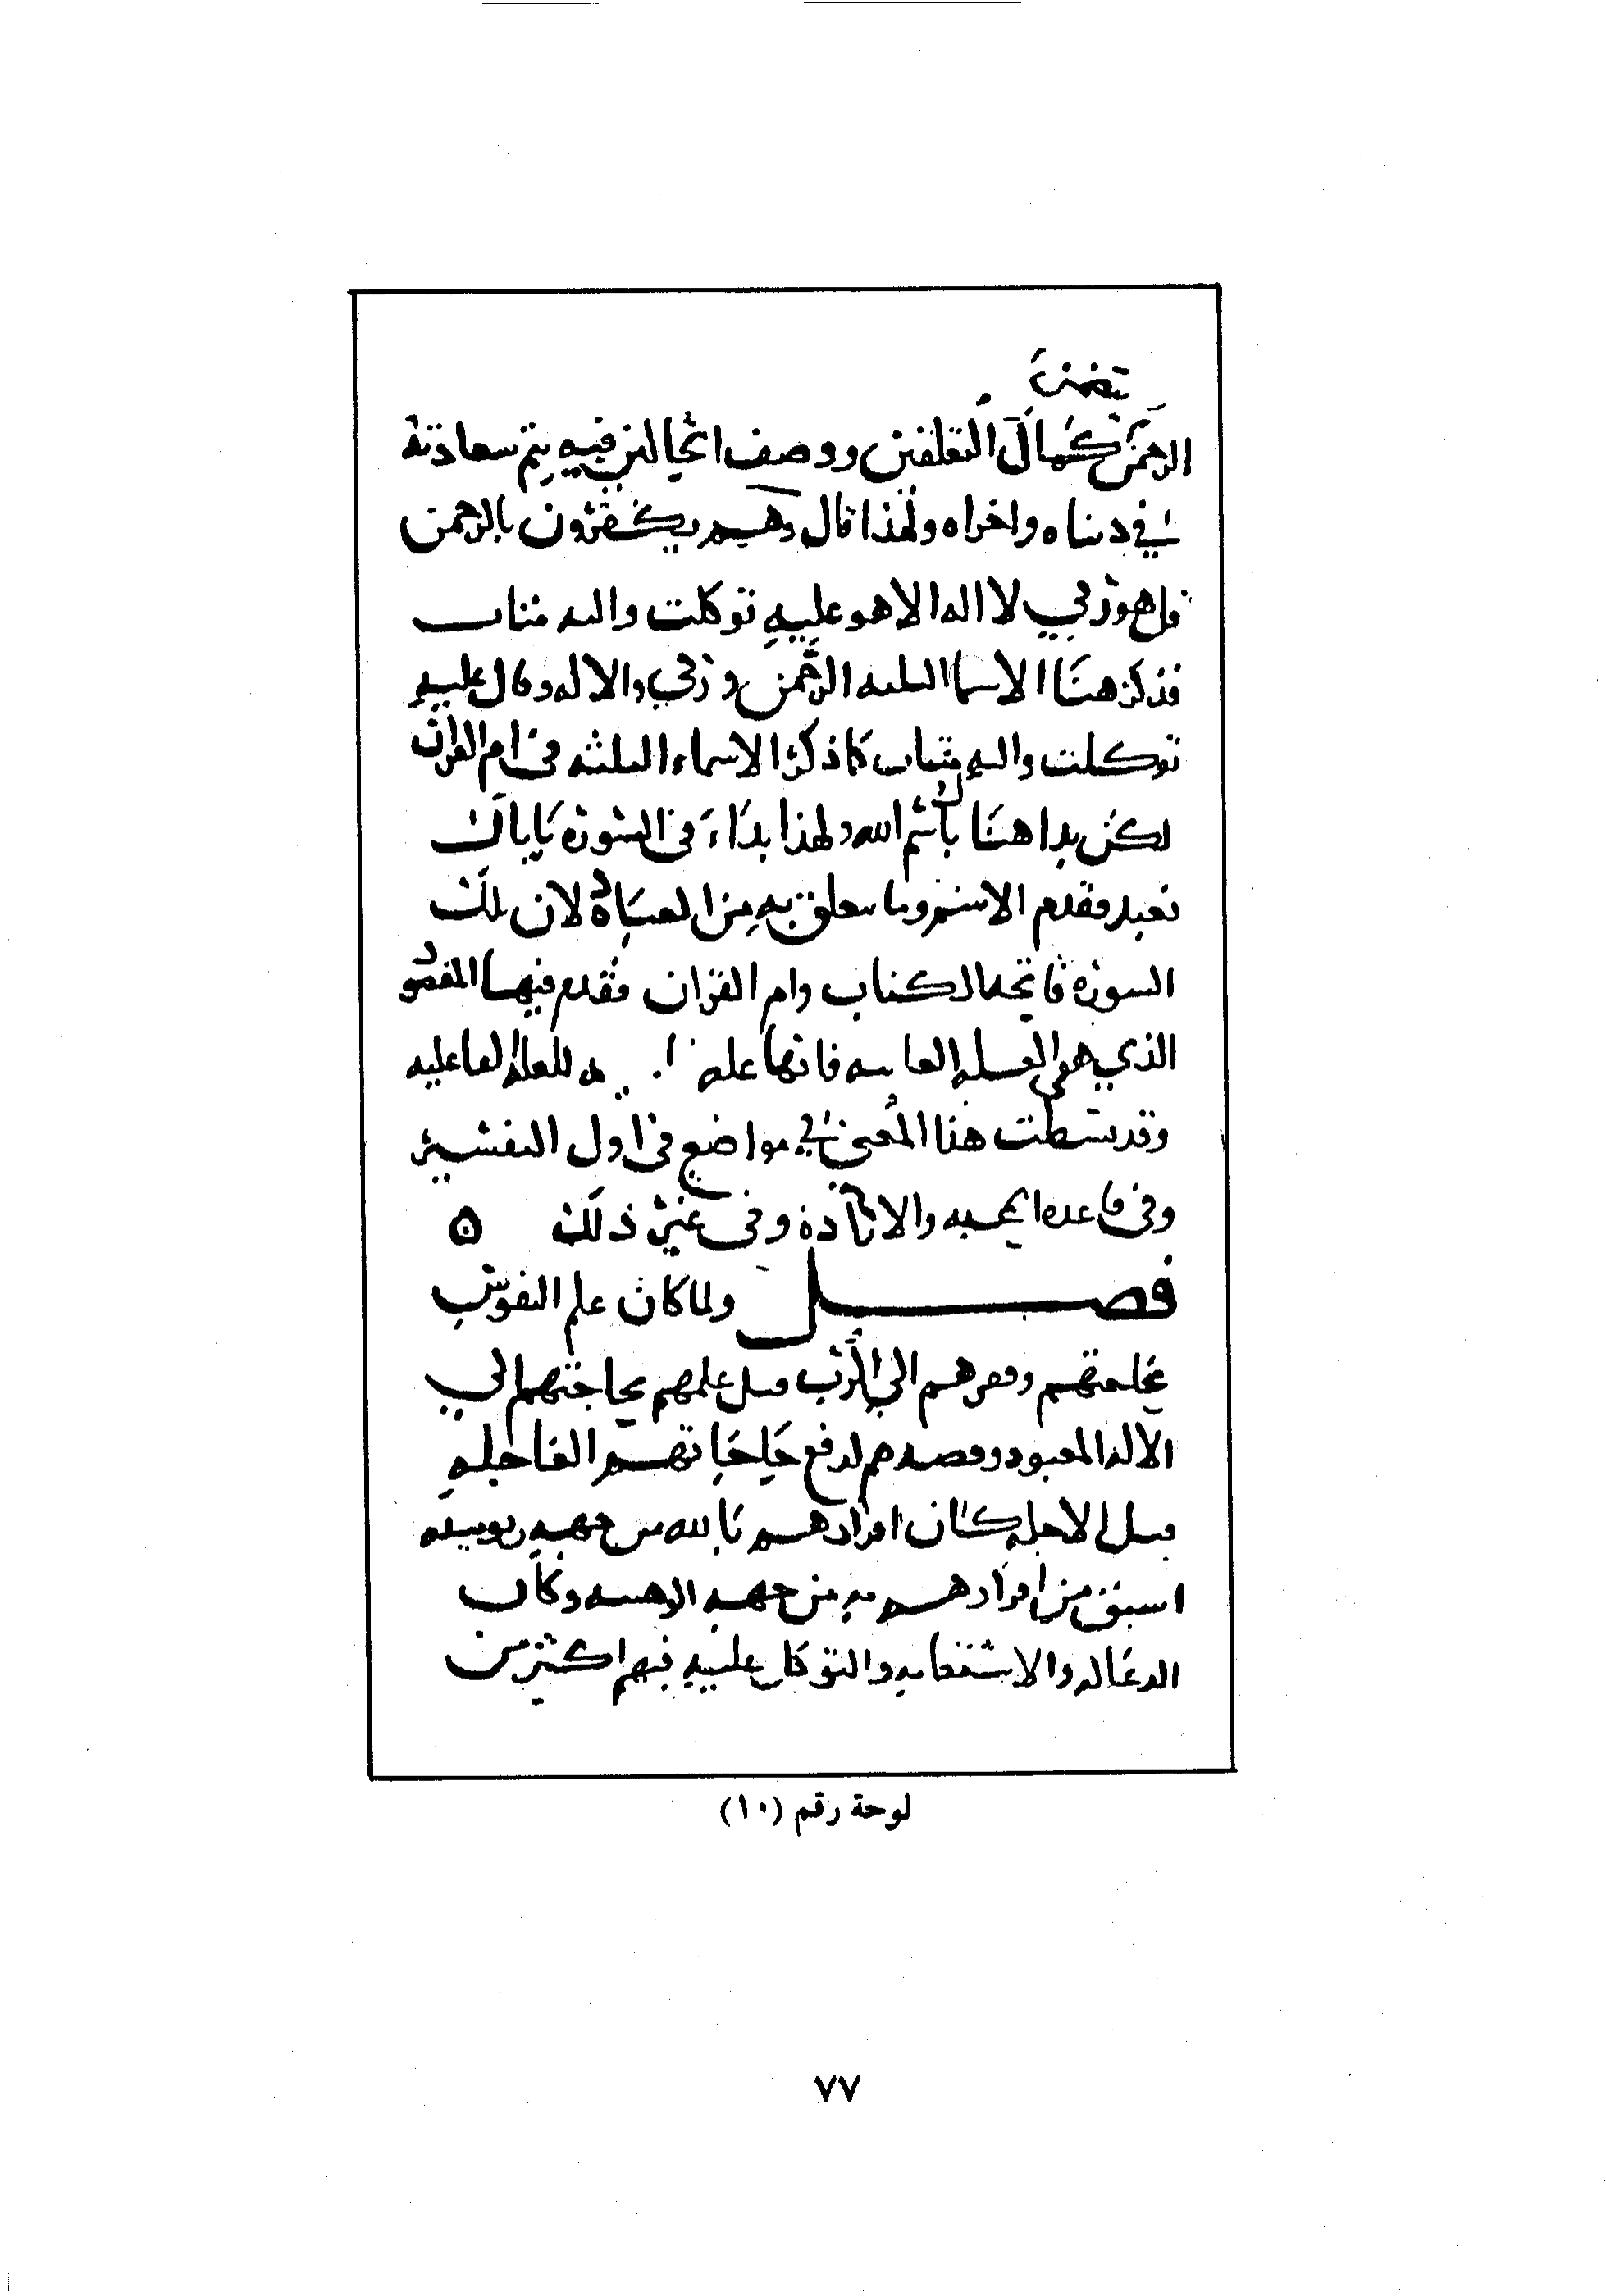 يتضمن
الرحمن كمال التعلقين ووصف الحالين فيه يتم سعادته
في دنياه واخراه ولهذا قال وهم يكفرون بالرحمن
قل هو ربي لا اله الا هو عليه توكلت واليه متاب
فذكر هنا الاسما الثلثه الرحمن وربي والاله وقال عليه
توكلت واليه متاب كما ذكر الاسماء الثلثه في ام القران
لكن بدا هناك باسم الله ولهذا بداء في السورة باياك
نعبد فقدم الاسم وما يتعلق به من العبادة لان تلك
السورة فاتحة الكتاب وام القران فقدم فيها المقصود
الذي هو العلة الغاييه فانها علة للعلة الفاعليه
وقد بسطت هذا المعنى في مواضع في اول التفسير
وفي قاعدة المحبه والارادة وفي غير ذلك ه
فصل ولما كان علم النفوس
بحاجتهم وفقرهم الى الرب قبل علمهم بحاجتهم الي
الاله المعبود وقصدهم لدفع حاجاتهم العاجلة
قبل الاجلة كان اقرارهم بالله من جهه ربوبيته
اسبق من اقرارهم به من جهه الوهيته وكان
الدعا له والاستعانه والتوكل عليه فيهم اكثر من
لوحة رقم (١٠)
٧٧